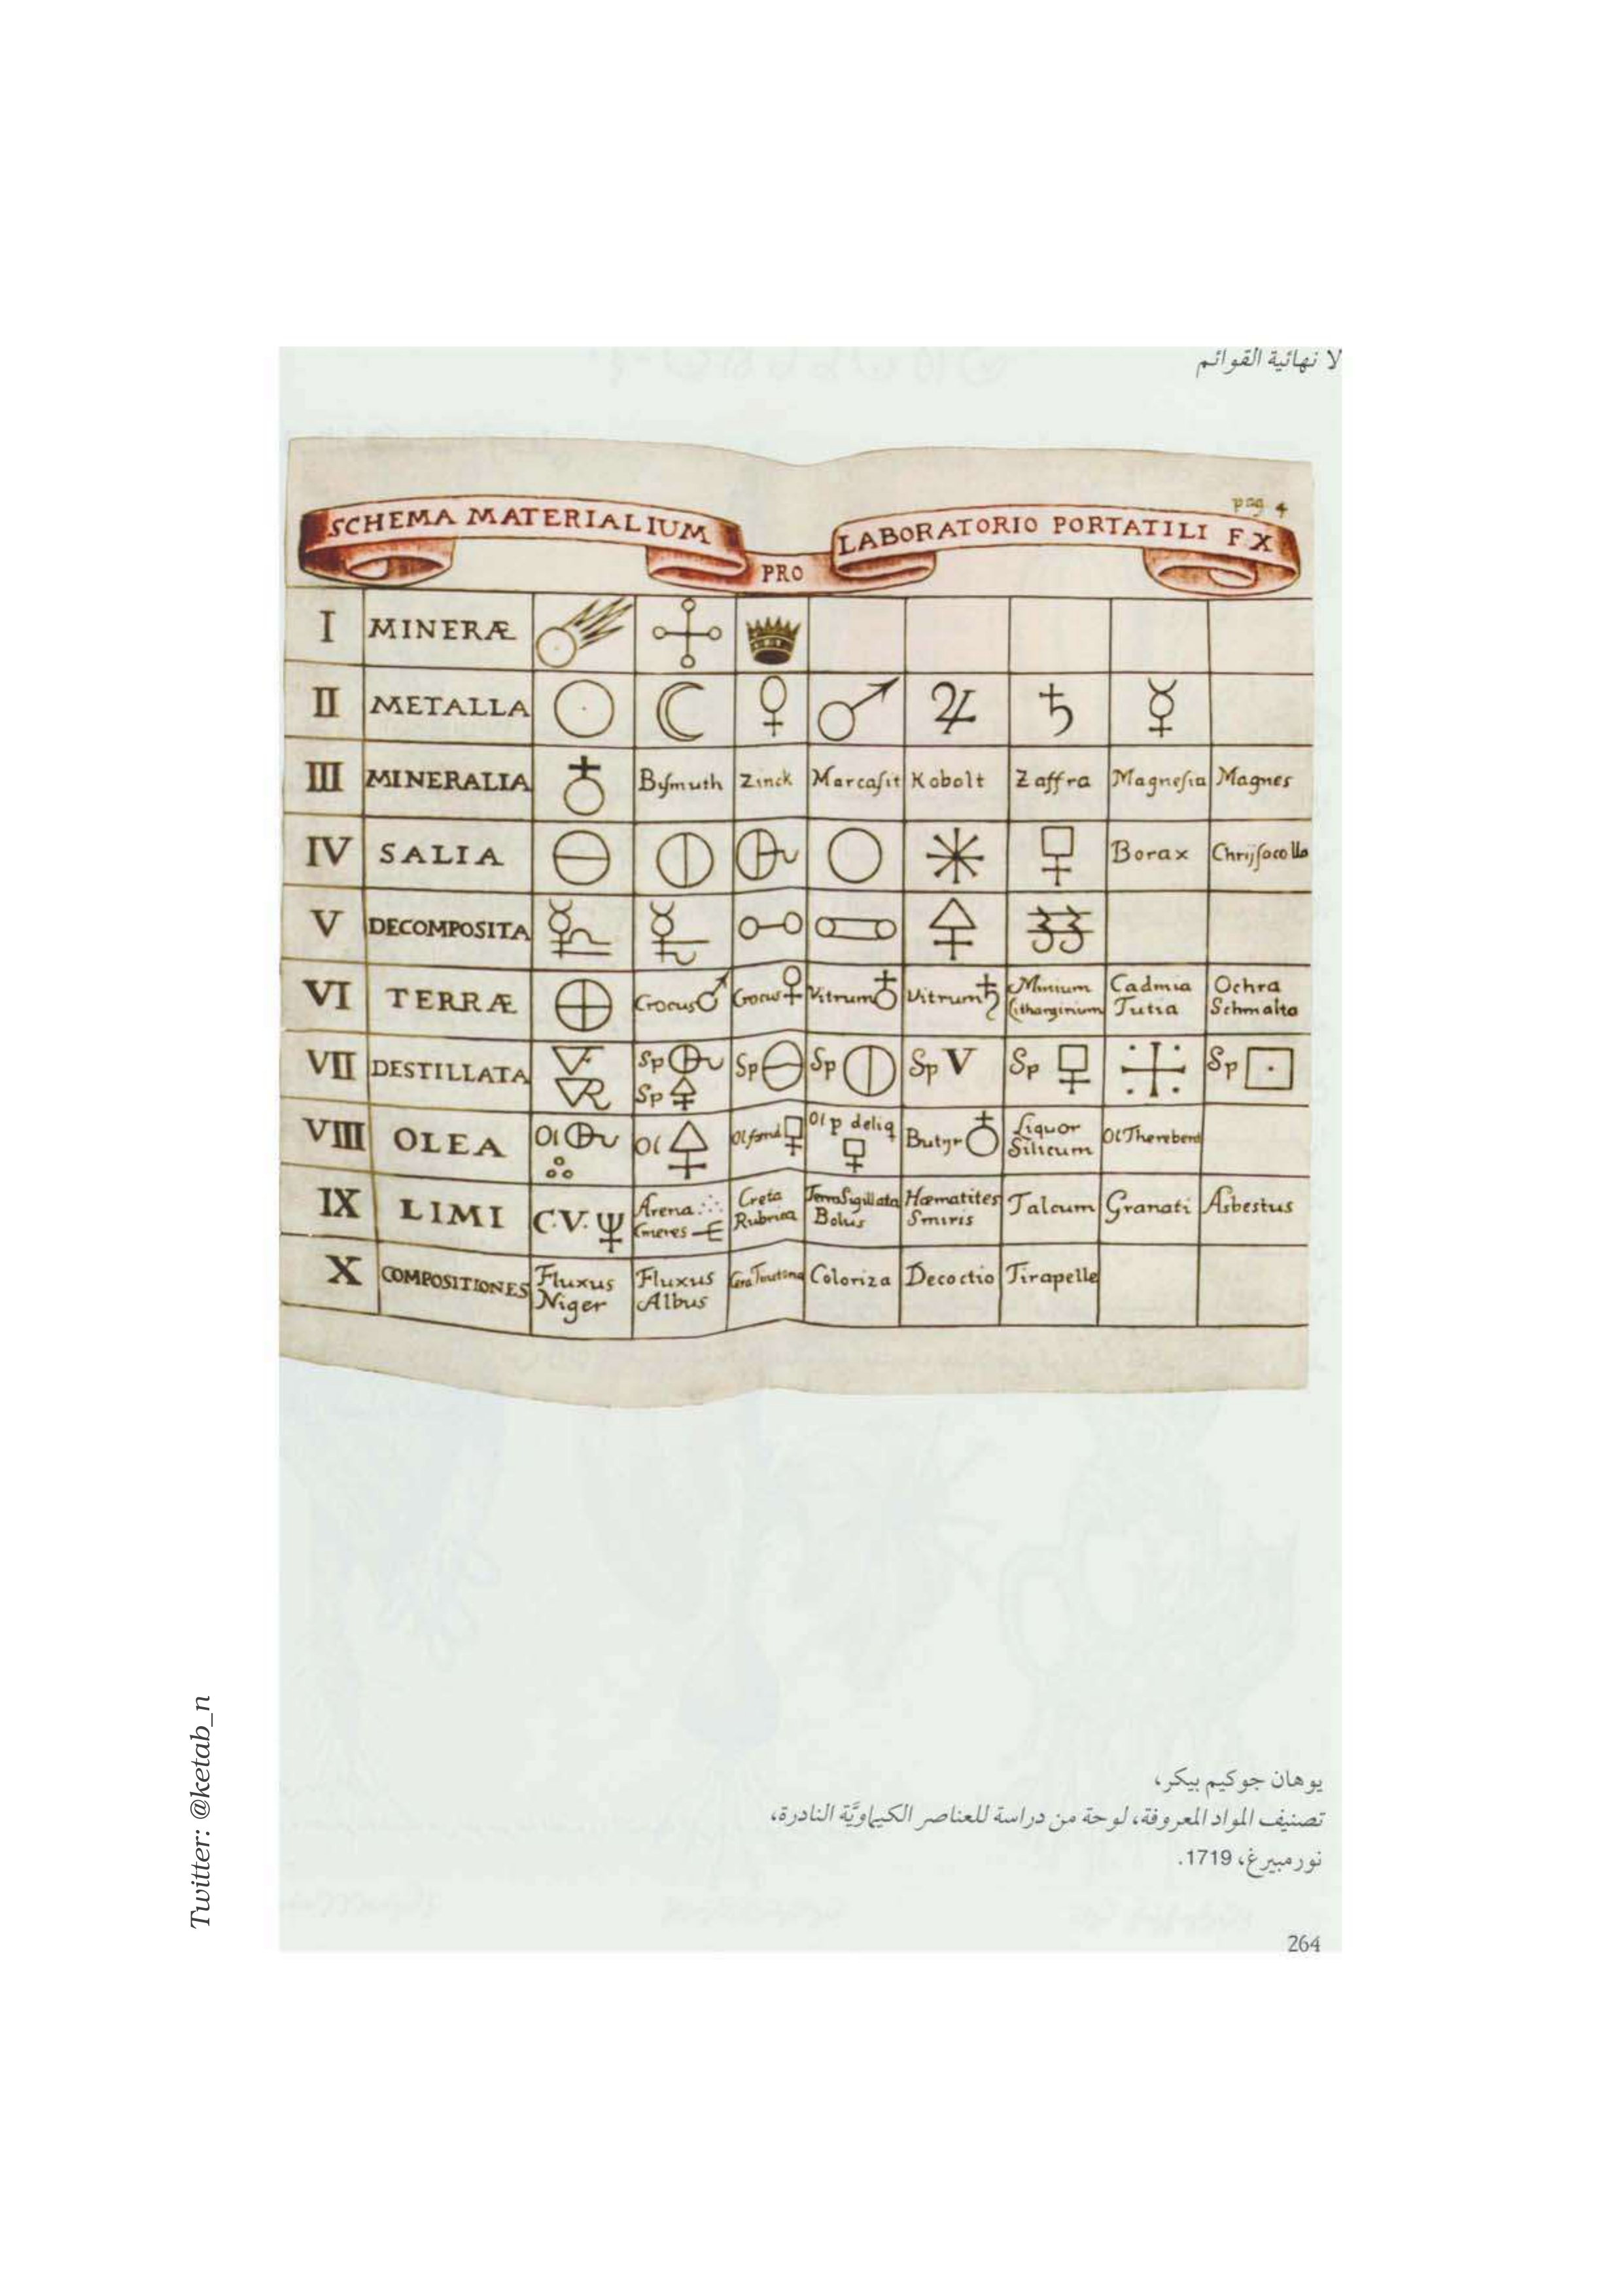 لا نهائية القوائم
pag 4
SCHEMA MATERIALIUM PRO LABORATORIO PORTATILI F X
I MINERÆ
II METALLA ☉ ☾ ♀ ♂ ♃ ♄ ☿
III MINERALIA ♁ Bysmuth Zinck Marcasit Kobolt Zaffra Magnesia Magnes
IV SALIA Borax Chrijsocolla
V DECOMPOSITA
VI TERRÆ Crocus ♂ Crocus ♀ Vitrum ♁ Vitrum ♄ Minium Lithargirium Cadmia Tutia Ochra Schmalta
VII DESTILLATA VF VR Sp Sp Sp Sp Sp V Sp Sp
VIII OLEA Ol Ol Ol Ol p deliq Butyr ♁ Liquor Silicum Ol Therebent
IX LIMI C.V. Arena Cineres Creta Rubrica Terra Sigillata Bolus Hæmatites Smiris Talcum Granati Asbestus
X COMPOSITIONES Fluxus Niger Fluxus Albus Coloriza Decoctio Tirapelle
يوهان جوكيم بيكر،
تصنيف المواد المعروفة، لوحة من دراسة للعناصر الكيماويَّة النادرة،
نورمبيرغ، 1719.
264
Twitter: @ketab_n